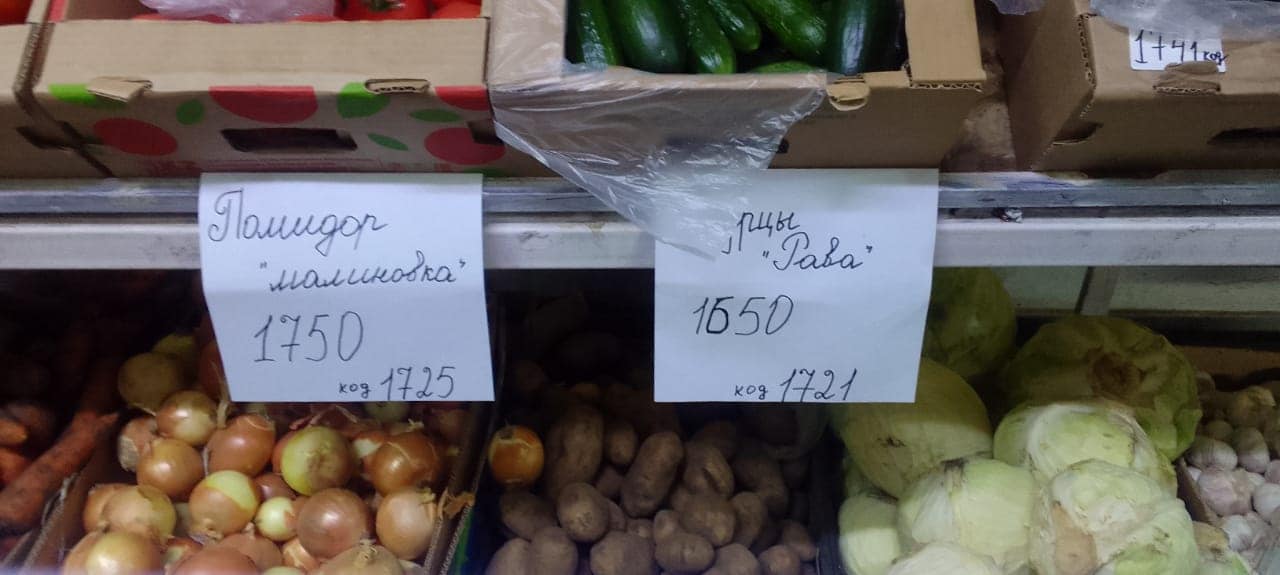 1741 код
Помидор
"малиновка"
1750
код 1725
рцы
"Рава"
1650
код 1721